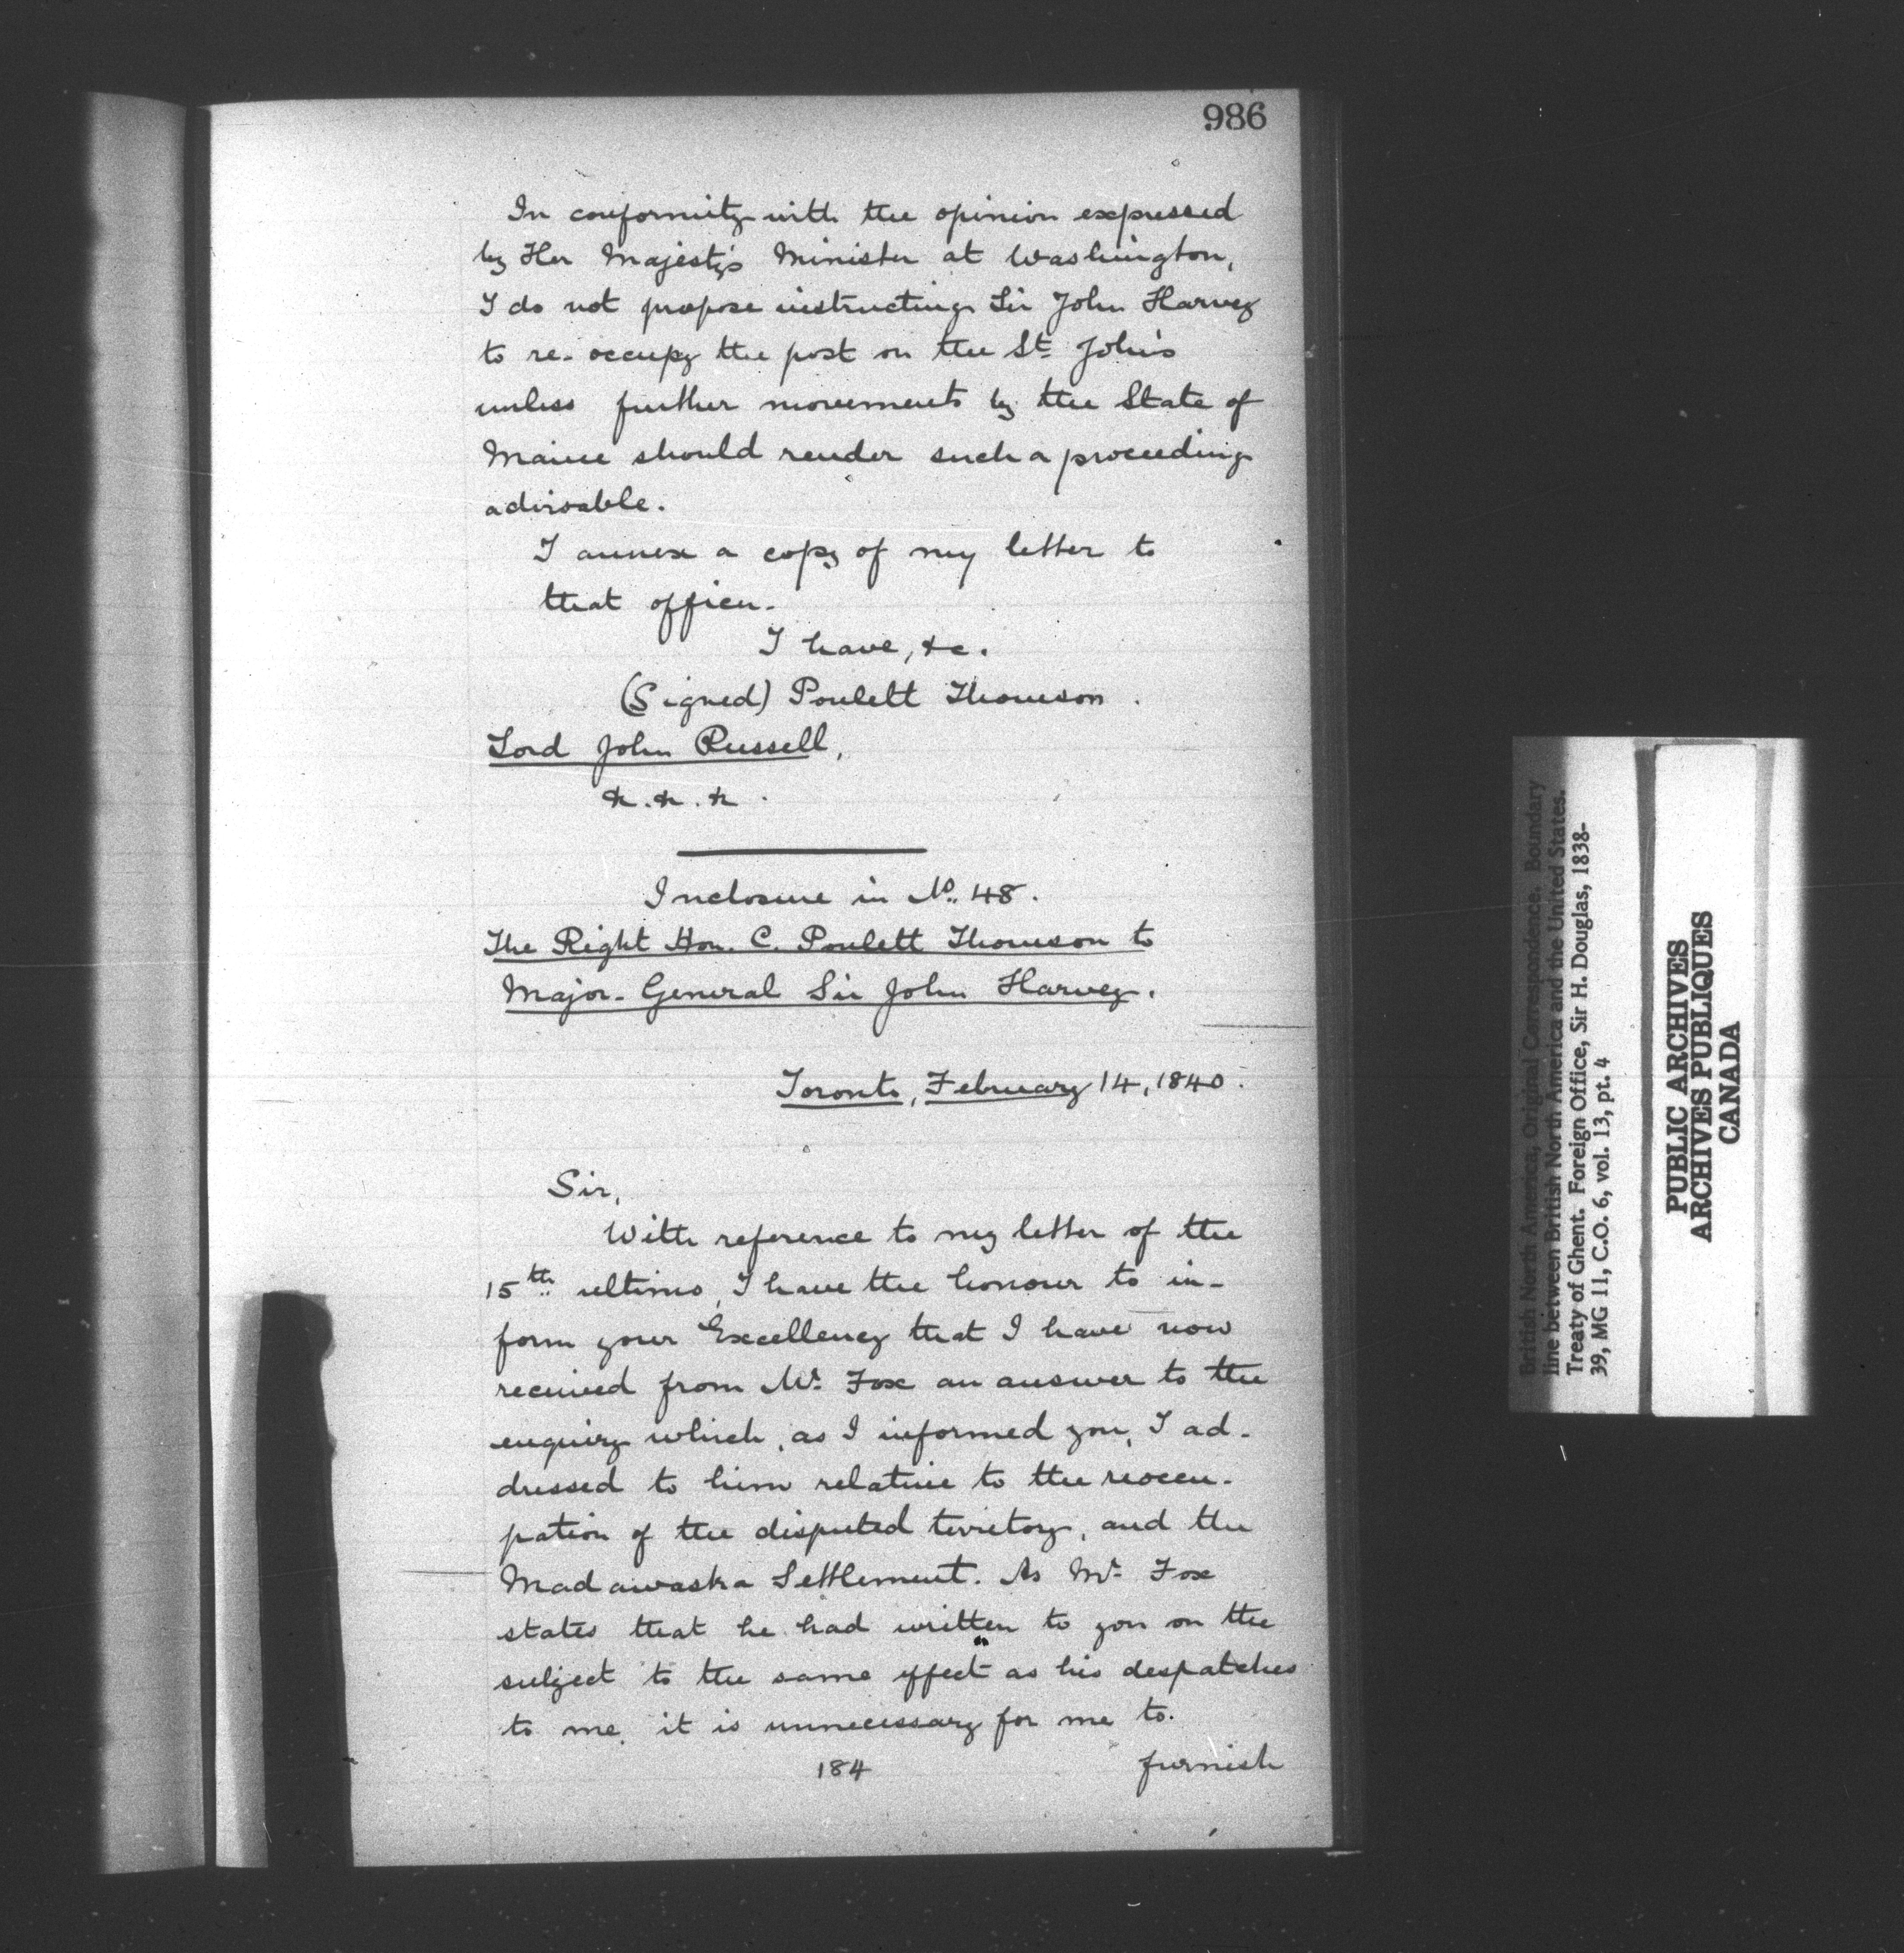 986
In conformity with the opinion expressed
by Her Majesty's Minister at Washington,
I do not propose instructing Sir John Harvey
to re-occupy the post on the St. John's
unless further movements by the State of
Maine should render such a proceeding
advisable.
I annex a copy of my letter to
that officer.
I have, &c.
(Signed) Poulett Thomson.
Lord John Russell,
&c. &c. &c.
Inclosure in No. 48.
The Right Hon. C. Poulett Thomson to
Major-General Sir John Harvey.
Toronto, February 14, 1840.
Sir,
With reference to my letter of the
15th ultimo, I have the honour to in-
form your Excellency that I have now
received from Mr. Fox an answer to the
enquiry which, as I informed you, I ad-
dressed to him relative to the reoccu-
pation of the disputed territory, and the
Madawaska Settlement. As Mr. Fox
states that he had written to you on the
subject to the same effect as his despatches
to me, it is unnecessary for me to
184 furnish
British North America, Original Correspondence. Boundary
line between British North America and the United States.
Treaty of Ghent. Foreign Office, Sir H. Douglas, 1838-
39, MG 11, C.O. 6, vol. 13, pt. 4
PUBLIC ARCHIVES
ARCHIVES PUBLIQUES
CANADA